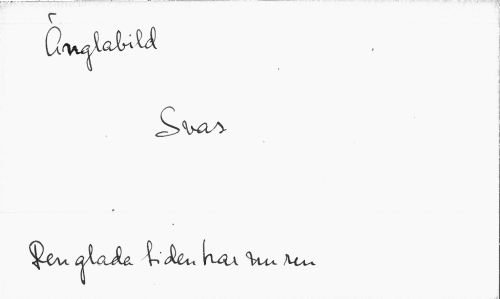 Änglabild
Svar
Den glada tiden har nu